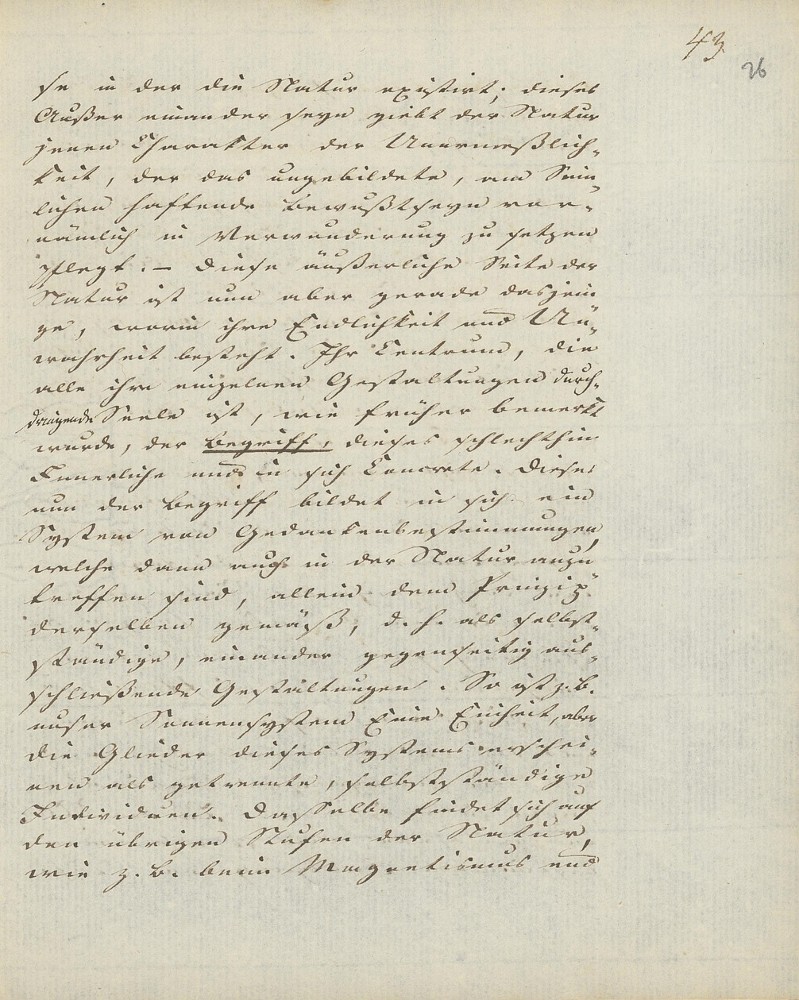 43
26
se in der die Natur existirt; dieses
Außer einander seyn giebt der Natur
jenen Charakter der Unermeßlich-
keit, der das ungebildete, am Sinn-
lichen haftende Bewußtseyn vor-
nämlich in Verwunderung zu setzen
pflegt. — Diese äußerliche Seite der
Natur ist nun aber gerade dasjeni
ge, worin ihre Endlichkeit und Un-
wahrheit besteht. Ihr Centrum, die
alle ihre einzelnen Gestaltungen durch-
dringende Seele ist, wie früher bemerkt
wurde, der Begriff, dieses schlechthin
Innerliche und in sich Concrete. Dieses
nun der Begriff bildet in sich ein
System von Gedankenbestimmungen,
welche dann auch in der Natur anzu
treffen sind, allein dem Prinzip
derselben gemäß, d. h. als selbst-
ständige, einander gegenseitig aus-
schließende Gestaltungen. So ist z. B.
unser Sonnensystem Eine Einheit, aber
die Glieder dieses Systems erschei-
nen als getrennte, selbstständige
Individuen. Dasselbe findet sich auf
den übrigen Stufen der Natur,
wie z. B. beim Magnetismus und